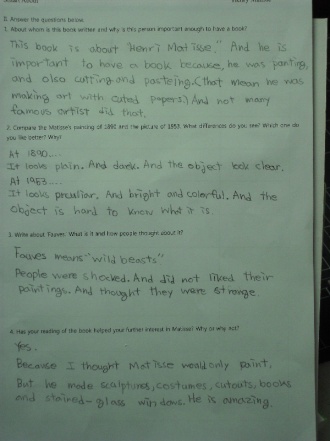 D. Answer the questions below.
1. About whom is this book written and why is this person important enough to have a book?
This book is about "Henri Matisse," And he is
important to have a book because, he was panting,
and also cutting and pasteing.(that mean he was
making art with cuted papers.) And not many
famous artist did that.
2. Compare the Matisse's painting of 1890 and the picture of 1953. What differences do you see? Which one do
you like better? Why?
At 1890....
It looks plain. And dark. And the object look clear.
At 1953....
It looks peculiar. And bright and colorful. And the
object is hard to know what it is.
3. Write about Fauves. What is it and how people thought about it?
Fauves means "wild beasts"
People were shocked. And did not liked their
paintings. And thought they were strange.
4. Has your reading of the book helped your further interest in Matisse? Why or why not?
Yes.
Because I thought Matisse would only paint.
But he made sculptures, costumes, cutouts, books
and stained-glass windows. He is amazing.